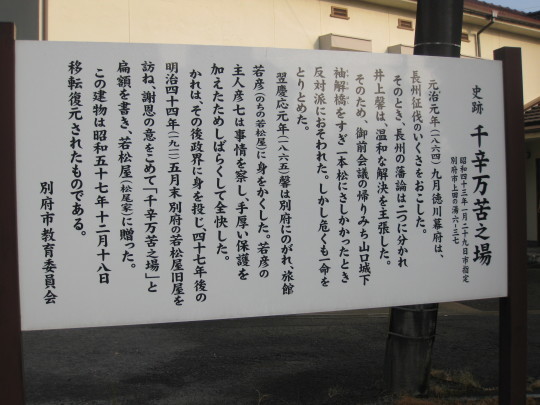 史跡 千辛万苦之場
昭和四十三年一月二十九日市指定
別府市上田の湯六ー三七
元治元年(一八六四)九月徳川幕府は、
長州征伐のいくさをおこした。
そのとき、長州の藩論は二つに分かれ
井上馨は、温和な解決を主張した。
そのため、御前会議の帰りみち山口城下
袖解橋をすぎ一本松にさしかかったとき
反対派におそわれた。しかし危くも一命を
とりとめた。
翌慶応元年(一八六五)馨は別府にのがれ、旅館
若彦(のちの若松屋)に身をかくした。若彦の
主人彦七は事情を察し、手厚い保護を
加えたためしばらくして全快した。
かれは、その後政界に身を投じ、四十七年後の
明治四十四年(一九一一)五月末別府の若松屋旧屋を
訪ね、謝恩の意をこめて「千辛万苦之場」と
扁額を書き、若松屋(松尾家)に贈った。
この建物は昭和五十七年十二月十八日
移転復元されたものである。
別府市教育委員会